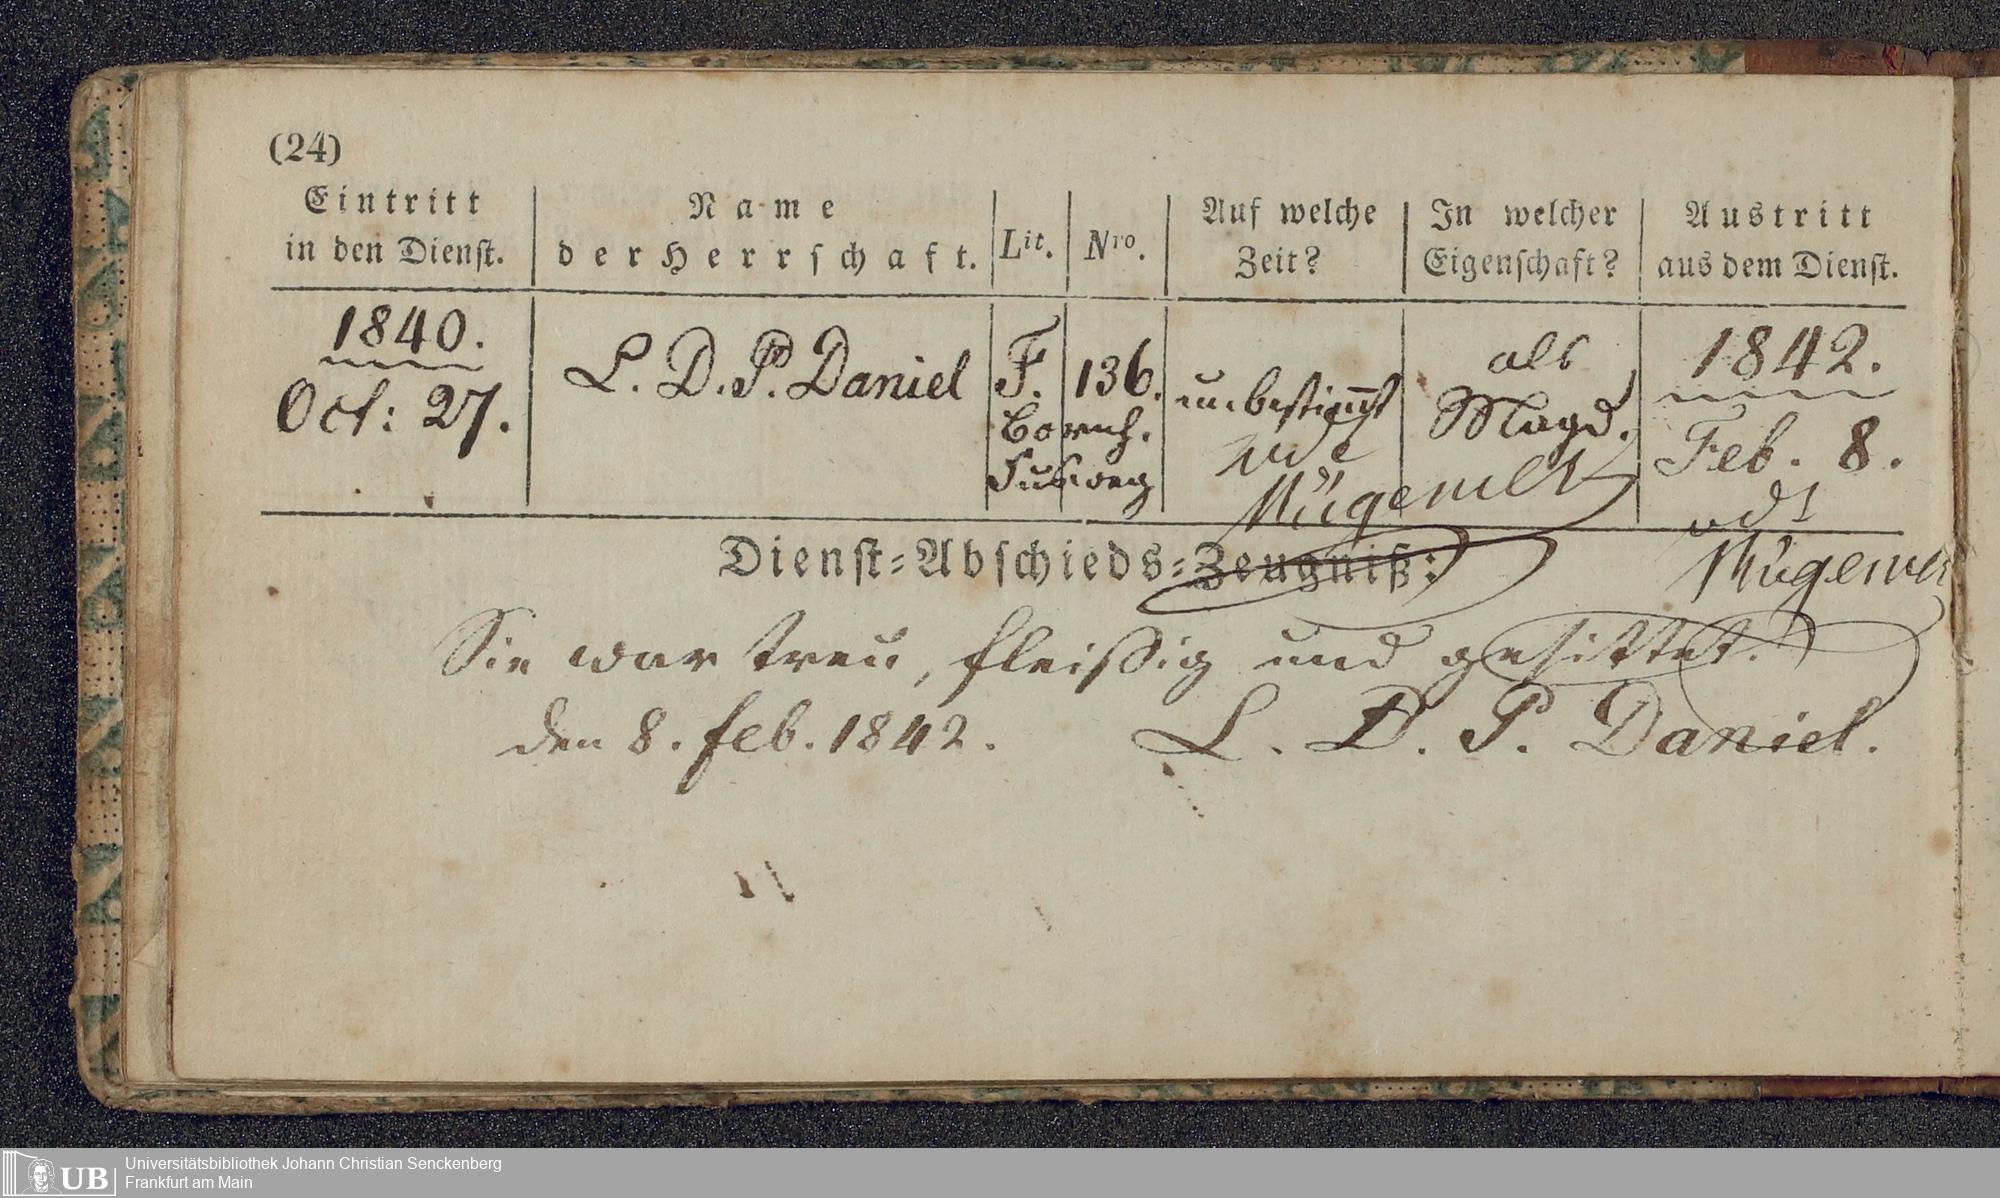 (24)
Eintritt in den Dienst.
Name der Herrschaft.
Lit.
Nro.
Auf welche Zeit?
In welcher Eigenschaft?
Austritt aus dem Dienst.
1840.
Oct: 27.
L. D. P. Daniel
F.
136.
Bornh.
Fusweg
unbestimmt
als
Magd.
1842.
Feb. 8.
Dienst-Abschieds-Zeugniß:
Sie war treu, fleißig und gesittet.
den 8. feb. 1842. L. D. P. Daniel.
Universitätsbibliothek Johann Christian Senckenberg
UB Frankfurt am Main